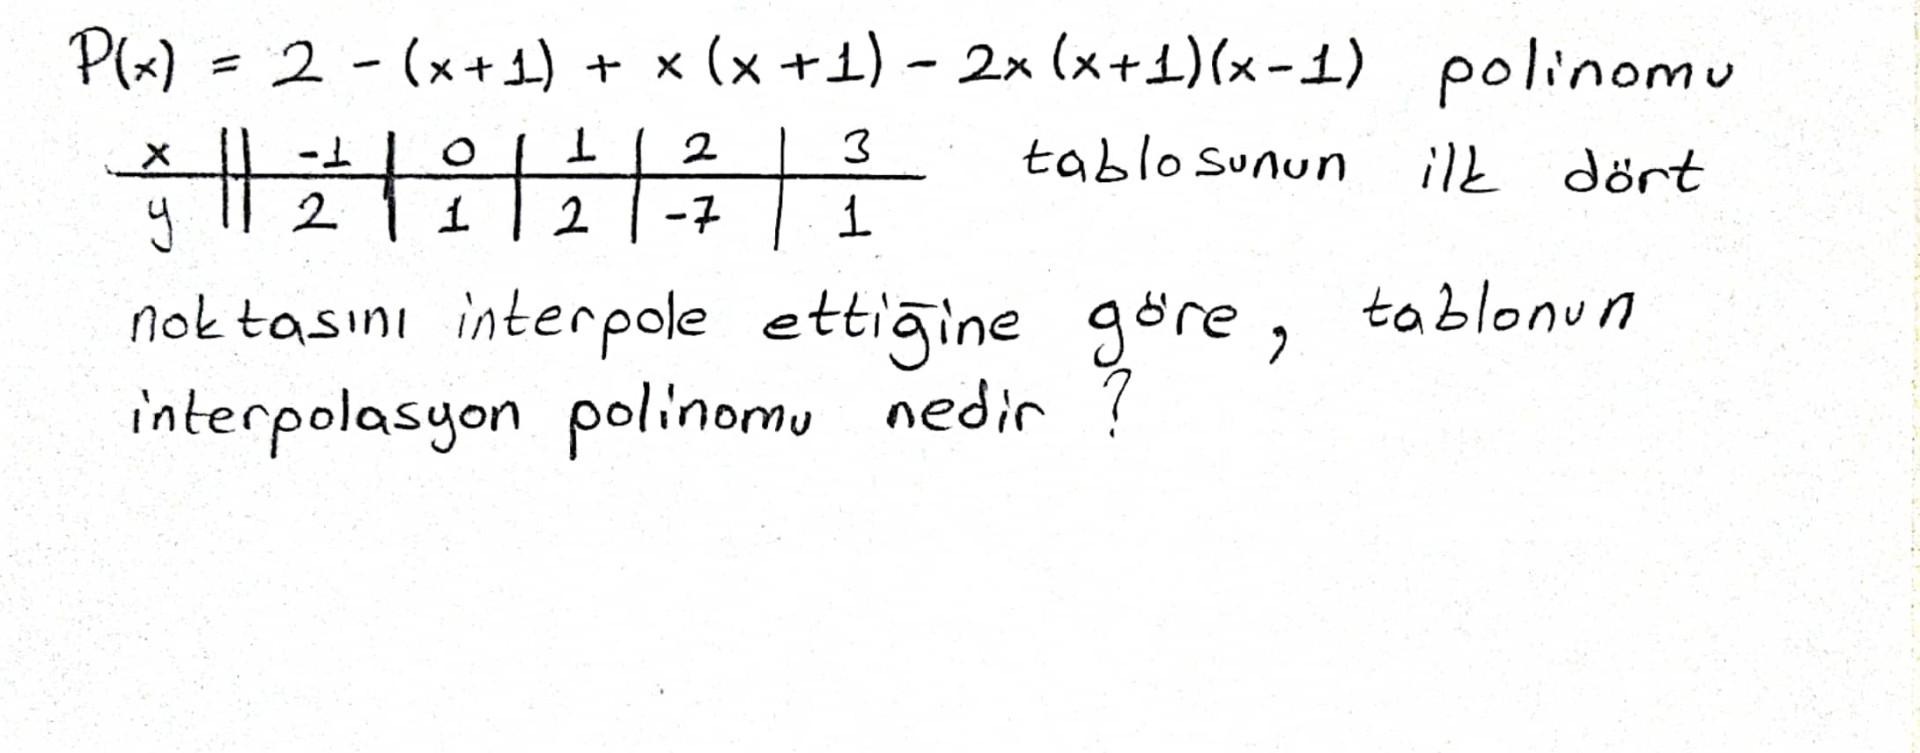 P(x) = 2 - (x+1) + x (x+1) - 2x (x+1)(x-1) polinomu
x || -1 | 0 | 1 | 2 | 3 tablosunun ilk dört
y || 2 | 1 | 2 | -7 | 1
noktasını interpole ettiğine göre, tablonun
interpolasyon polinomu nedir ?